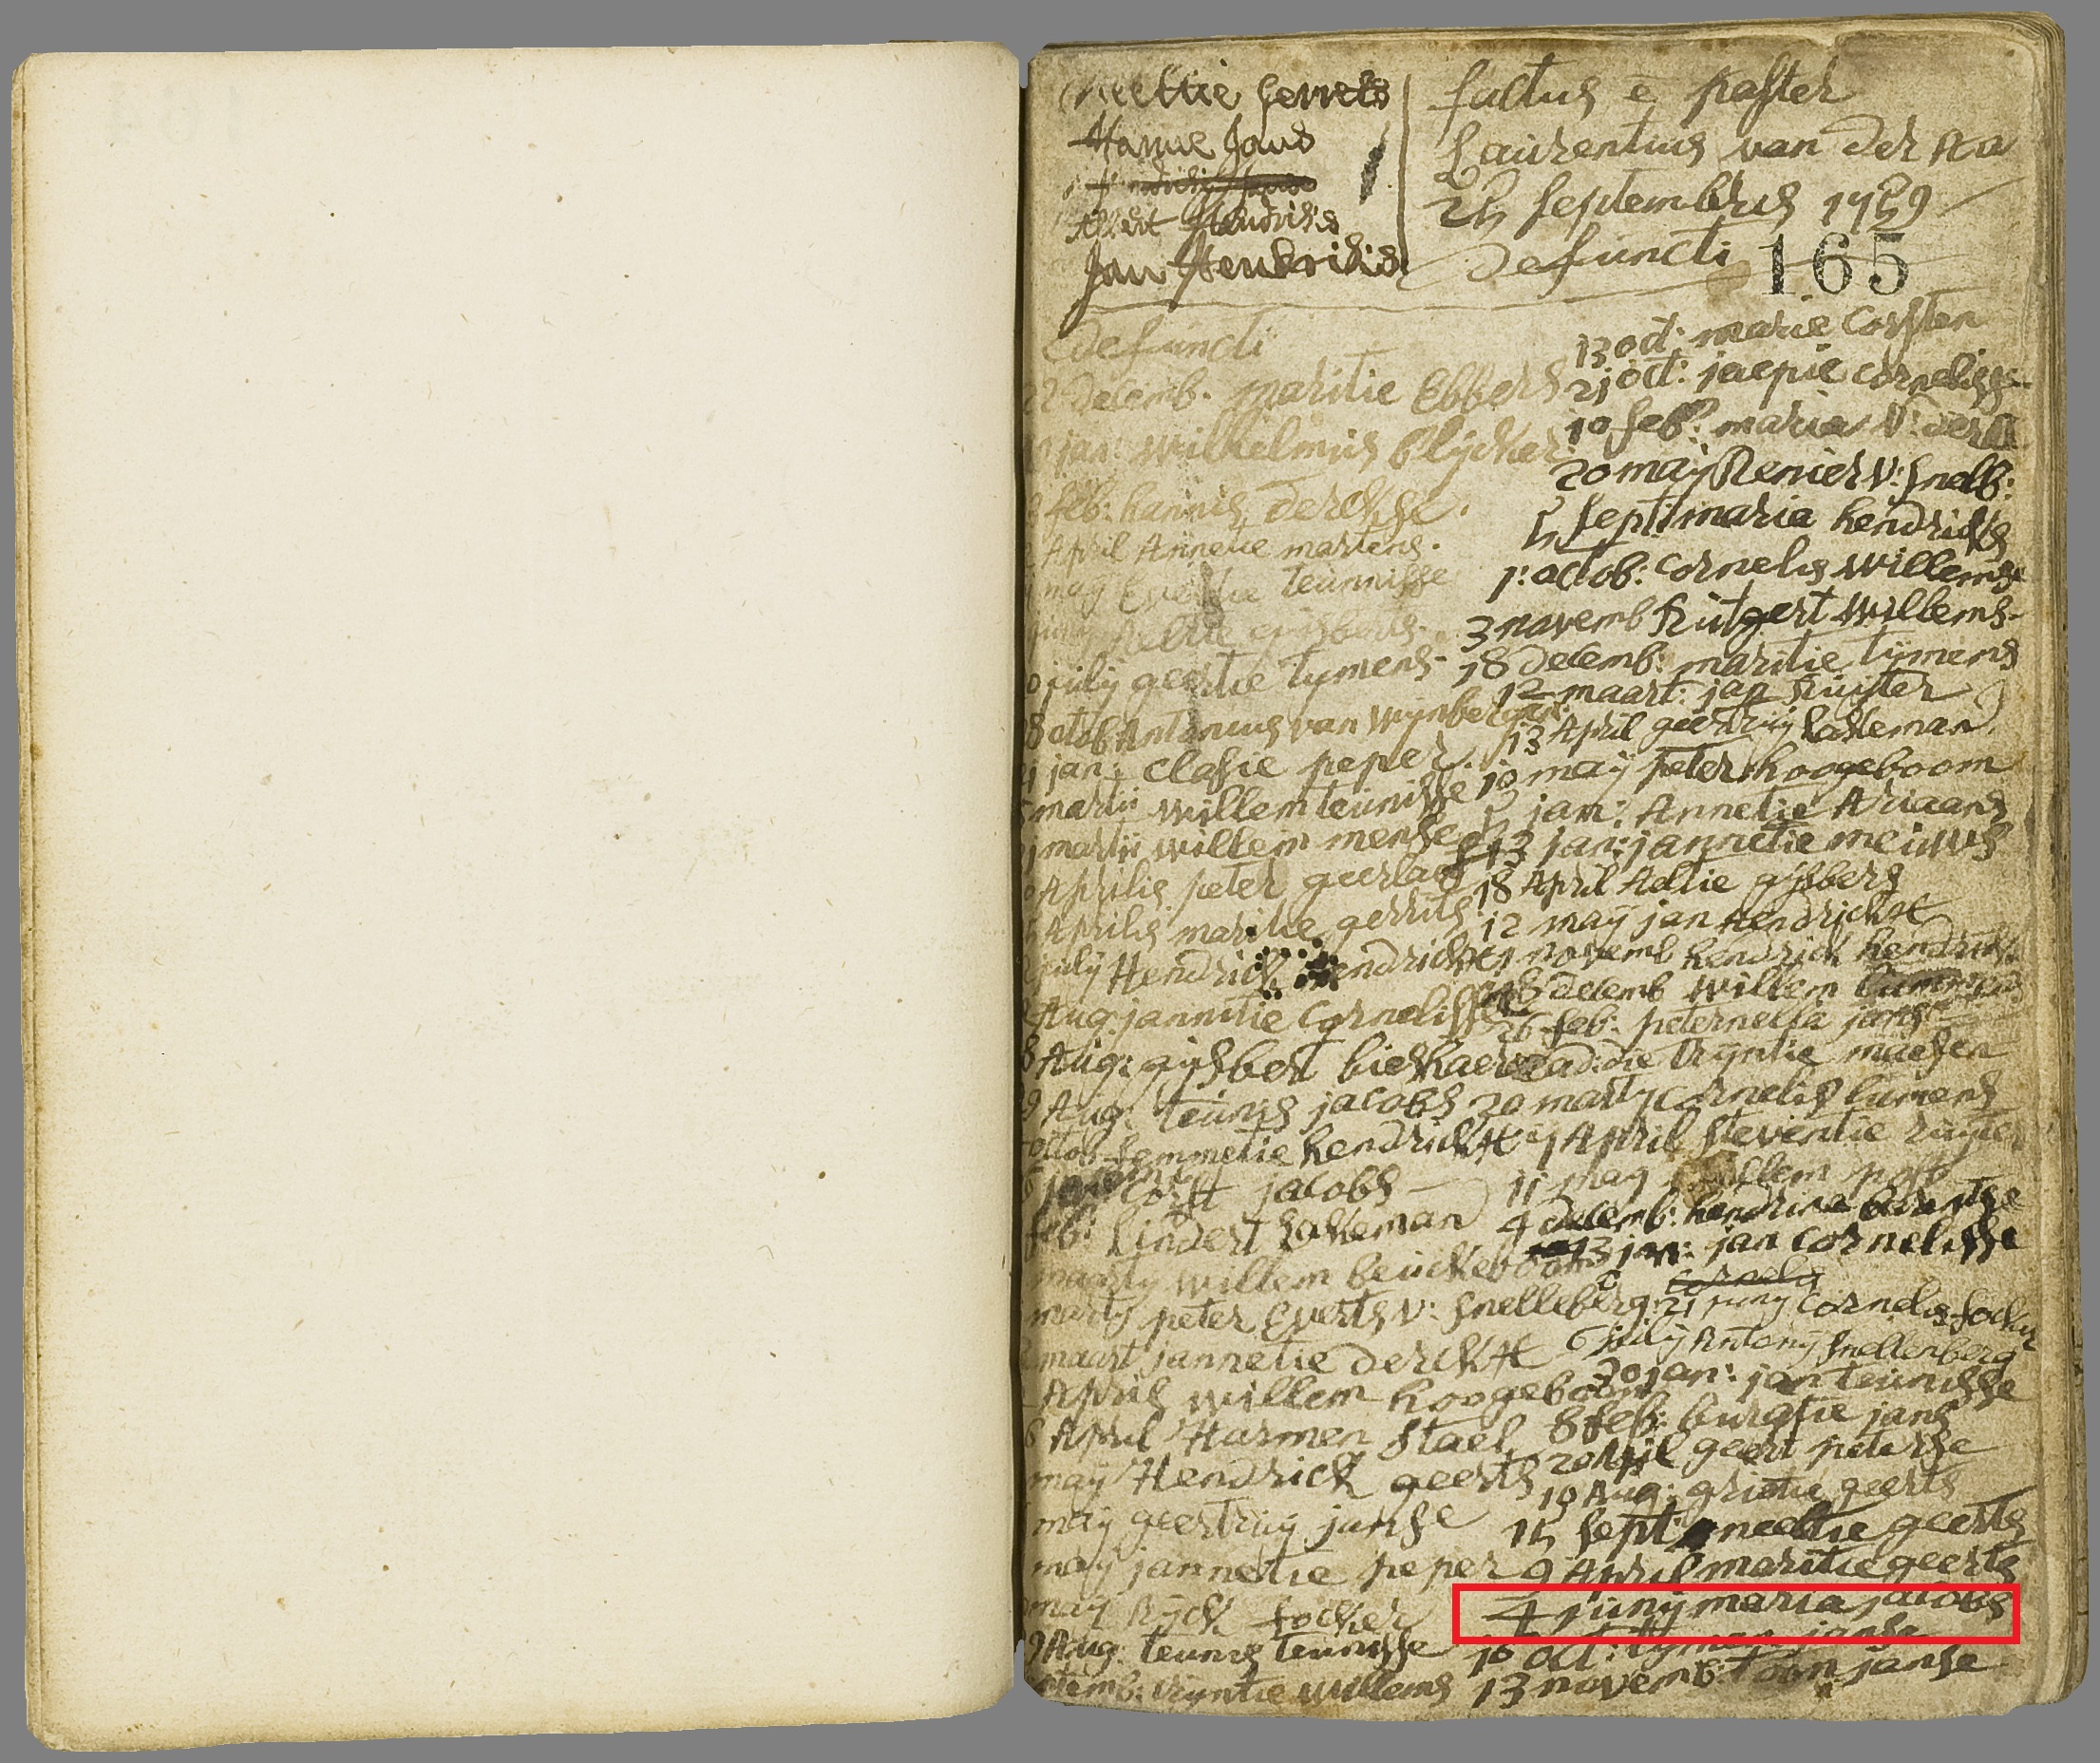 Neeltie Gerrets
Hannie Jans
Albert Hendriks
Jan Hendriks
factus e paster
Laurentius van der Aa
25 septembris 1759
defuncti
165
defuncti
22 decemb. maritie Ebbers
jan: wilhelmus Blijcker
feb: hannis dercksse.
April Annetie martens.
may Evertie teunnisse
gijsberts.
july geertie tymens.
8 octob Antonius van wijnbergen
jan: clasie peper.
martii willem teunisse
martii willem mensse
Aprilis peter geerlags
Aprilis maritie gerrits
july Hendrick hendrickse
Aug: jannitie Cornelisse
Aug: gijsbert bieshaer
9 Aug: teunis jacobs
octob femmetie hendrickse
jacobs
feb: lindert hakkeman
maerty willem beuckeboom
marty peter Everts v: snelleberg:
maart jannetie derckse
Aprilis willem hoogeboom
April Harmen stael
may Hendrick geerts
may geertruy janse
may jannetie peper
may Rijck focker
9 Aug: teunis teunisse
temb: Trijntie willems
13 oct: marie Corsten
21 oct: jaepie cornelisse
10 feb: maria v: der
20 may Renier v: snelb:
5 sept maria hendricks
1: octob: cornelis willemse
3 novemb Rutgert willems
18 decemb: maritie tijmens
12 maart: jan sluijter
13 April geertruy hakkeman
19 may peter hoogeboom
5 jan: Annetie Ariaans
13 jan: jannetie meiuws
18 April Aeltie gijsbers
12 may jan Hendrickse
novemb hendrick hendricks
18 decemb willem
26 feb: peternella janse
ead: die Trijntie maesen
20 marty cornelis tumens
April steventie
11 may willem
4 decemb: hendrica
13 jan: jan Cornelisse
cornelis
21 juny cornelis focker
6 july Antony snellenberg
20 jan: jan teunisse
8 feb: burgtie jans
20 April geert peterse
19 Aug: grietie geerts
15 sept: neeltie geerts
9 April maritie geerts
4 juny maria jacobs
10 oct: tymen janse
13 novemb: toon janse